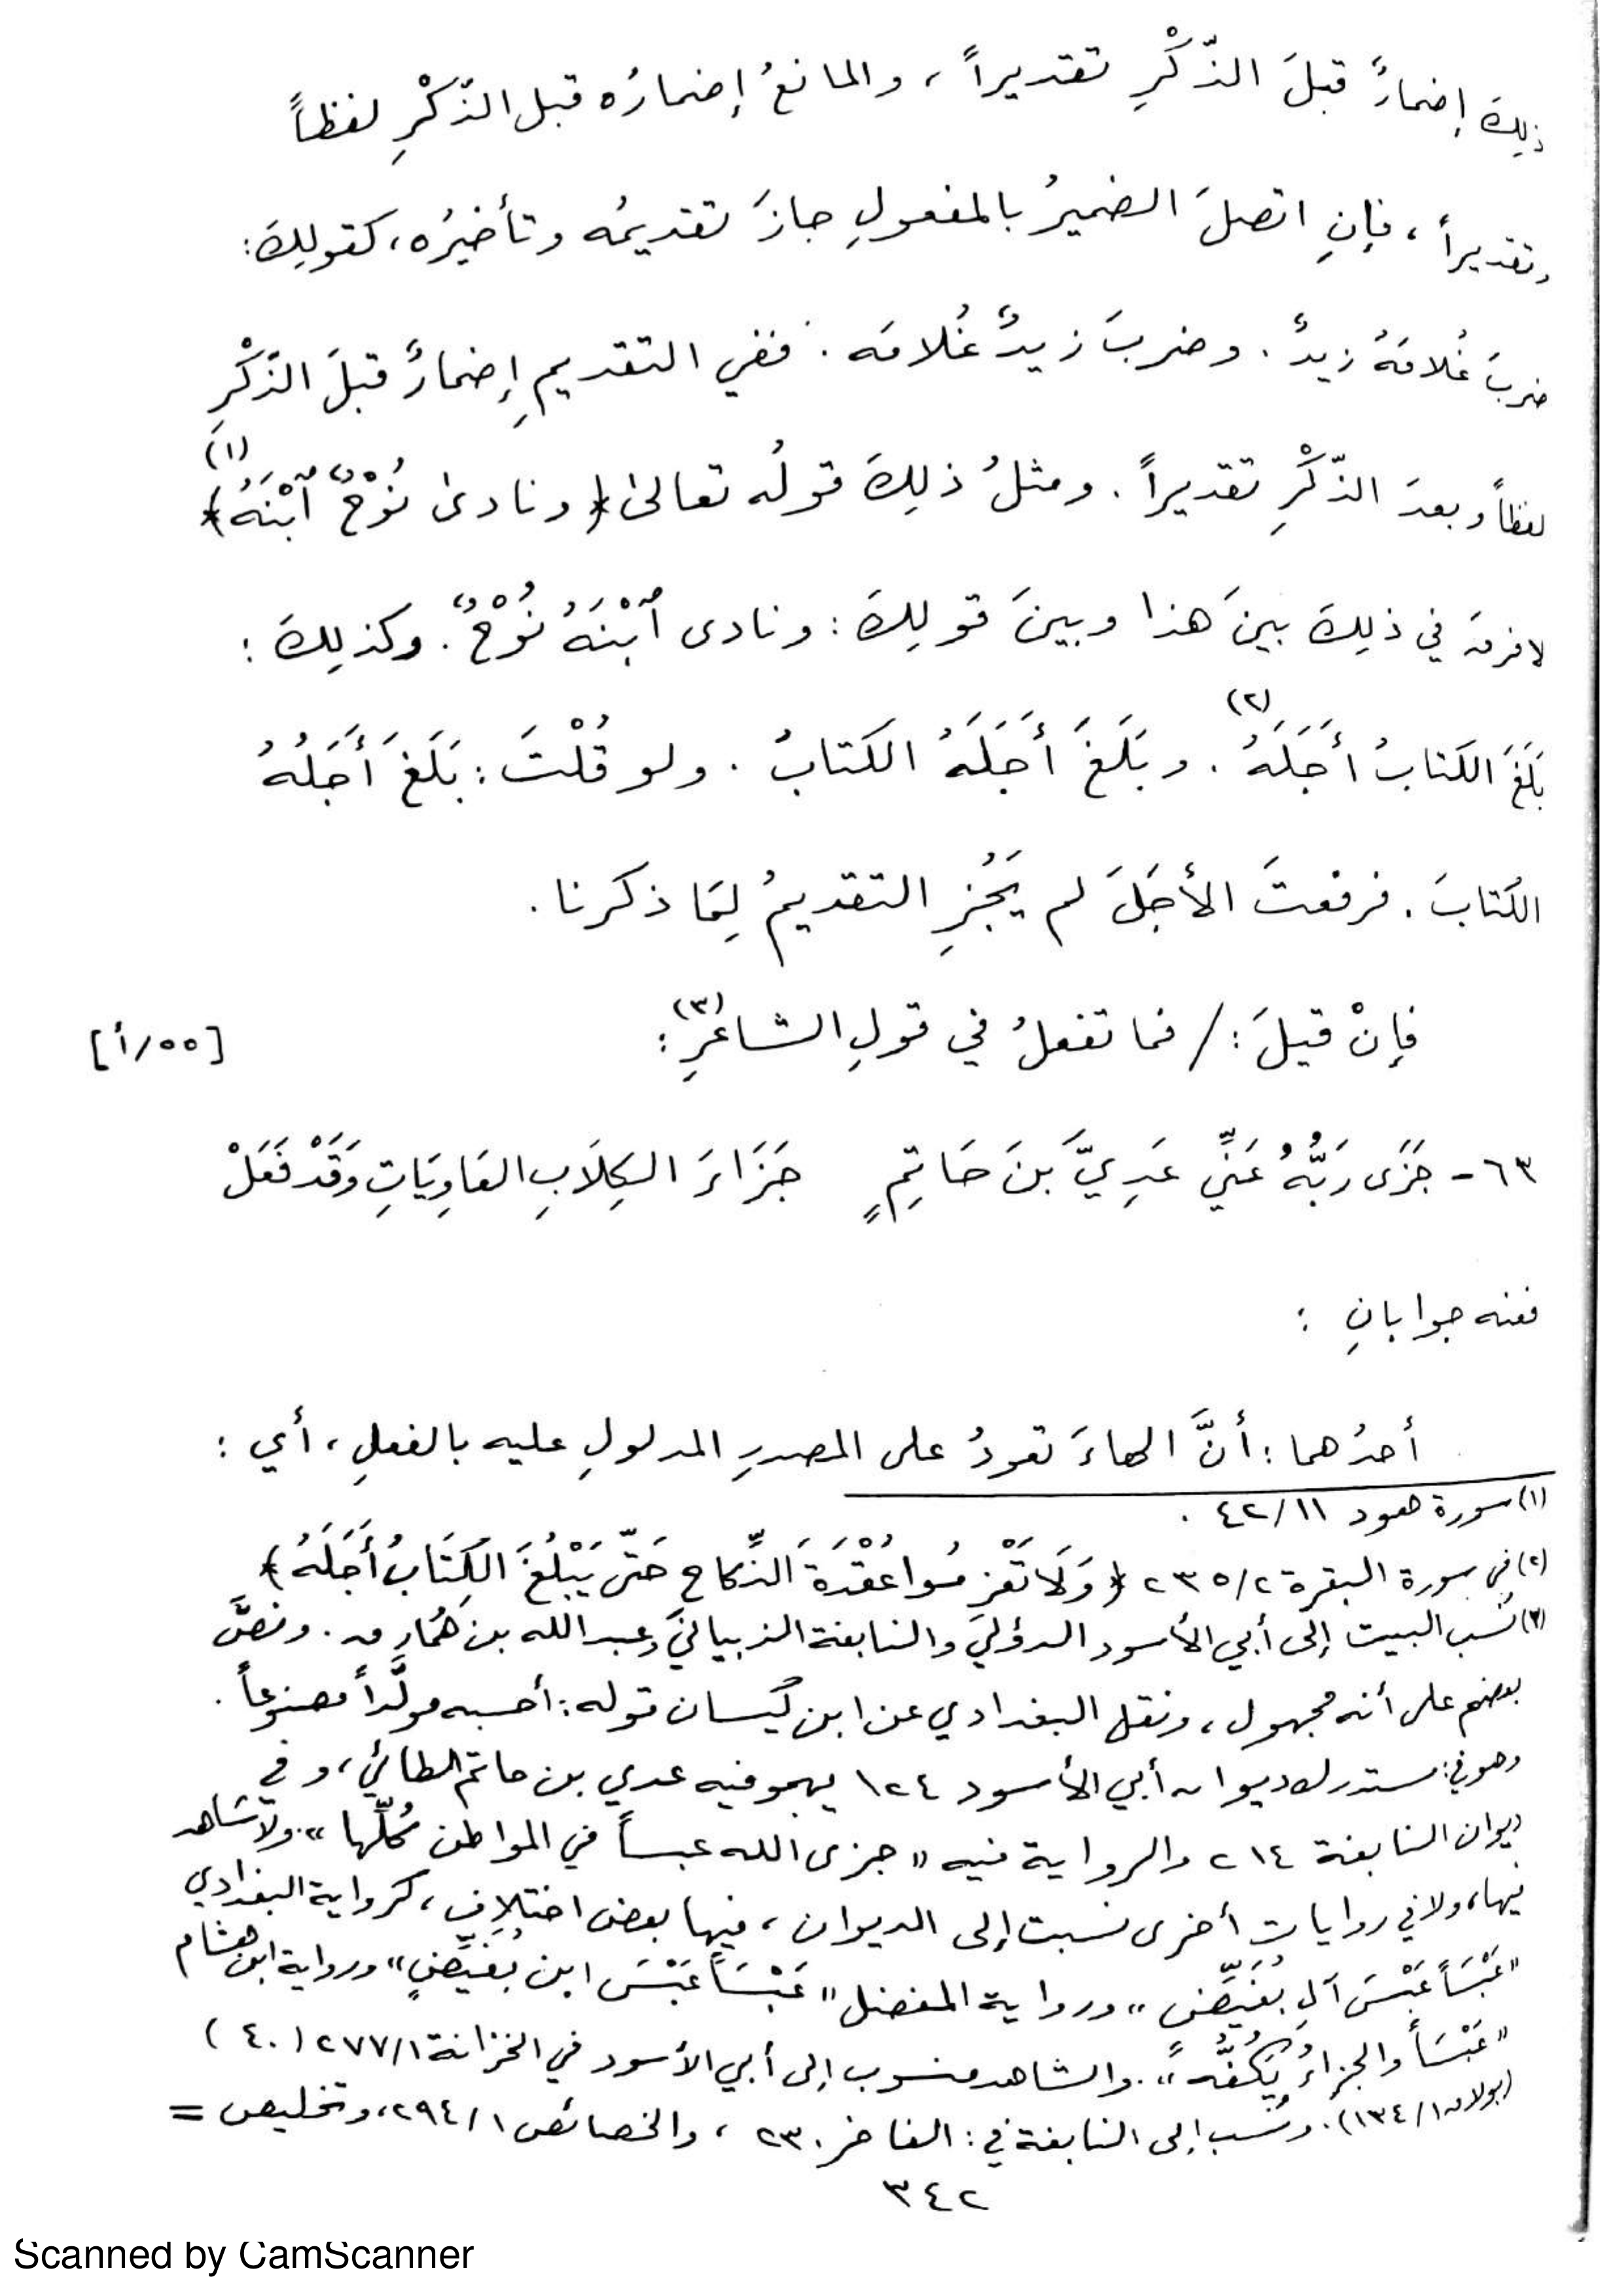 ذلِكَ إضمارٌ قبلَ الذّكْرِ تقديراً، والمانعُ إضمارُه قبل الذّكْرِ لفظاً
وتقديراً، فإنِ اتصلَ الضميرُ بالمفعولِ جازَ تقديمُه وتأخيرُه، كقولِكَ:
ضربَ غُلامَهُ زيدٌ. وضربَ زيدٌ غُلامَه. ففي التقديمِ إضمارٌ قبلَ الذّكْرِ
لفظاً وبعدَ الذّكْرِ تقديراً. ومثلُ ذلِكَ قولُه تعالى ﴿ونادى نُوْحٌ ٱبْنَهُ﴾ (١)
لا فرقَ في ذلِكَ بينَ هذا وبينَ قولِكَ: ونادى ٱبْنَهُ نُوْحٌ. وكذلِكَ:
بَلَغَ الكتابُ أَجَلَهُ (٢). وبَلَغَ أَجَلَهُ الكتابُ. ولو قُلْتَ: بَلَغَ أَجَلُهُ
الكتابَ. فرفعتَ الأجَلَ لم يَجُزِ التقديمُ لِمَا ذكرنا.
فإنْ قيلَ: / فما تفعلُ في قولِ الشاعرِ (٣): [٥٥/أ]
٦٣ - جَزَى رَبُّهُ عَنِّي عَدِيَّ بنَ حَاتِمٍ جَزَاءَ الكِلَابِ العَاوِيَاتِ وَقَدْ فَعَلْ
ففيه جوابانِ:
أحدُهما: أنَّ الهاءَ تعودُ على المصدرِ المدلولِ عليه بالفعلِ، أي:
(١) سورة هود ٤٢/١١.
(٢) في سورة البقرة ٢٣٥/٢ ﴿وَلَا تَعْزِمُوا عُقْدَةَ النِّكاحِ حَتّى يَبْلُغَ الكِتَابُ أَجَلَهُ﴾
(٣) نُسب البيت إلى أبي الأسود الدؤليّ والنابغة الذبيانيّ وعبد الله بن هُمَارِق. ونصَّ
بعضهم على أنه مجهول، ونقل البغدادي عن ابن كَيسان قوله: أحسبه مولَّداً مصنوعاً.
وهو في: مستدرك ديوان أبي الأسود ١٢٤ يهجو فيه عدي بن حاتم الطائي، و في
ديوان النابغة ٢١٤ والرواية فيه «جزى الله عبساً في المواطن كُلِّها». ولا شاهد
فيها، ولا في روايات أخرى نسبت إلى الديوان، فيها بعض اختلافٍ، كرواية البغدادي
«عَبْسَاً عَبْسَ آلِ بُغَيِّضٍ» ورواية المفضل «عَبْسَاً عَبْسَ ابن بُغَيِّضٍ» ورواية ابن هشام
«عَبْسَاً والجزاءُ بِكَفِّه». والشاهد منسوب إلى أبي الأسود في الخزانة ٢٧٧/١ (٤٠)
(بولاق ١٣٤/١). ونُسب إلى النابغة في: الفاخر ٢٣٠، والخصائص ٢٩٤/١، وتخليص =
٣٤٢
Scanned by CamScanner